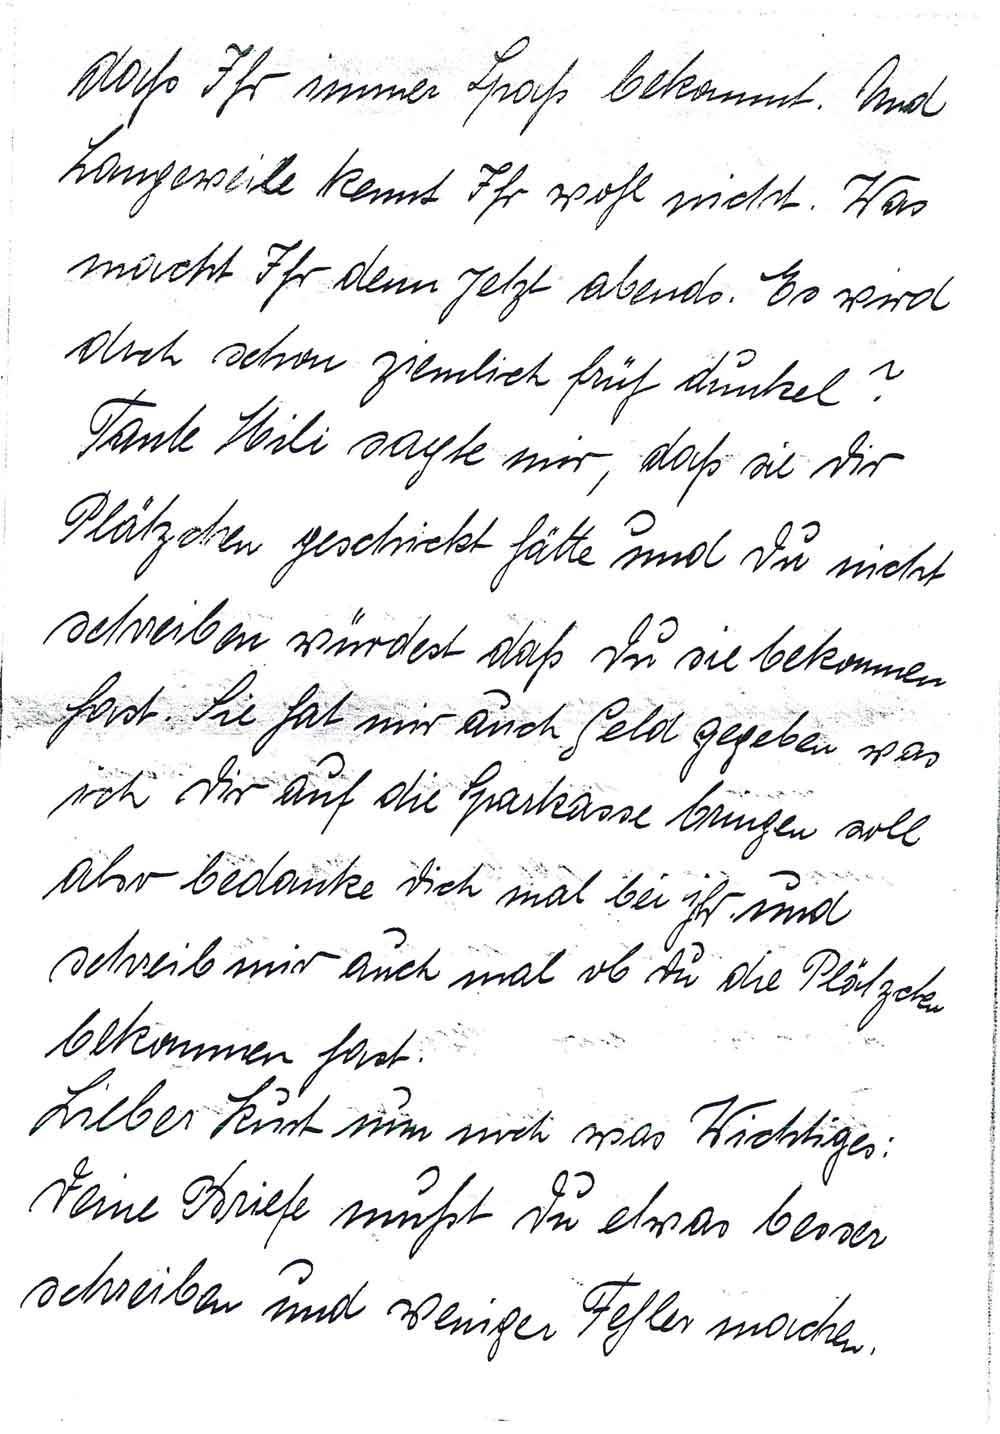 daß Ihr immer Spaß bekommt. Und
Langeweile kennt Ihr wohl nicht. Was
macht Ihr denn jetzt abends. Es wird
doch schon ziemlich früh dunkel?
Tante Hili sagte mir, daß sie Dir
Plätzchen geschickt hätte und Du nicht
schreiben würdest daß Du sie bekommen
hast. Sie hat mir auch Geld gegeben was
ich Dir auf die Sparkasse bringen soll
also bedanke Dich mal bei ihr und
schreib mir auch mal ob Du die Plätzchen
bekommen hast.
Lieber Kurt nun noch was Wichtiges:
Deine Briefe mußt Du etwas besser
schreiben und weniger Fehler machen.